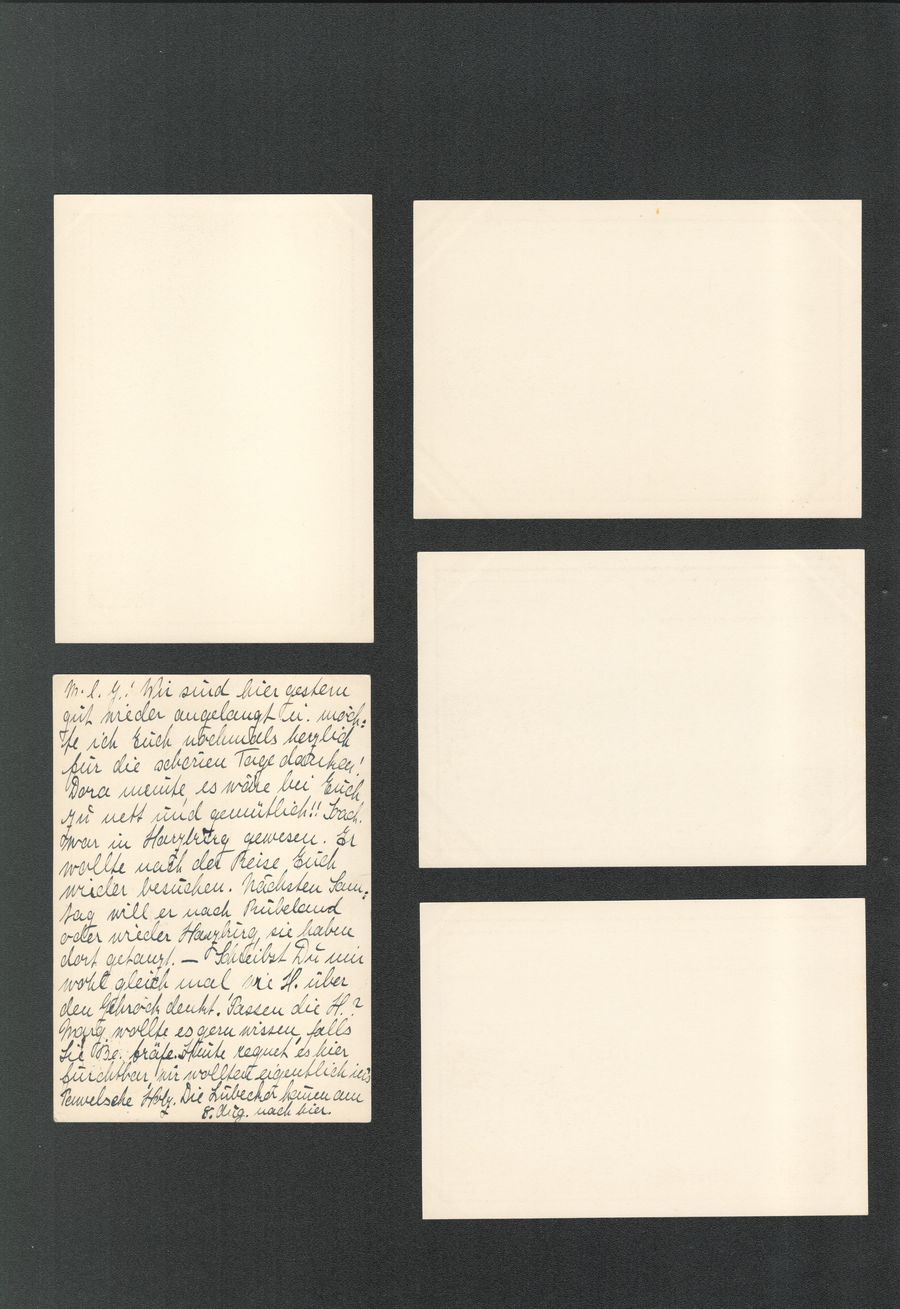 M. l. G.! Wir sind hier gestern
gut wieder angelangt u. möch-
te ich Euch nochmals herzlich
für die schönen Tage danken!
Dora meinte, es wäre bei Euch
zu nett und gemütlich!!
war in Harzburg gewesen. Er
wollte nach der Reise Euch
wieder besuchen. Nächsten Sam-
tag will er nach Rübeland
oder wieder Harzburg, sie haben
dort getanzt. — Schreibst Du mir
wohl gleich mal wie H. über
den Gehrock denkt. Passen die H.?
Marg. wollte es gern wissen, falls
Sie träfe. Heute regnet es hier
furchtbar, wir wollten eigentlich ins
Holz. Die Lübecker kamen am
8. Aug. nach hier.